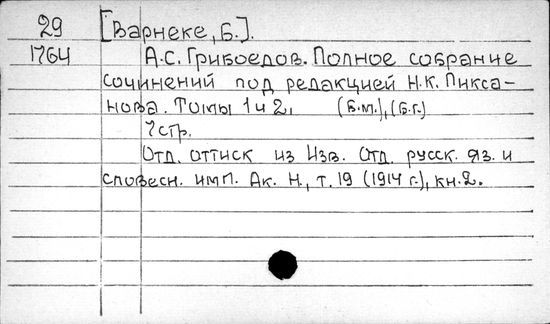 29 [Варнеке, Б.].
1764 А.С. Грибоедов. Полное собрание
сочинений под редакцией Н.К. Пикса-
нова. Томы 1 и 2. (б.м.), (б.г.)
7 стр.
Отд. оттиск из Изв. Отд. русск. яз. и
словесн. имп. Ак. Н, т. 19 (1914 г.), кн. 2.